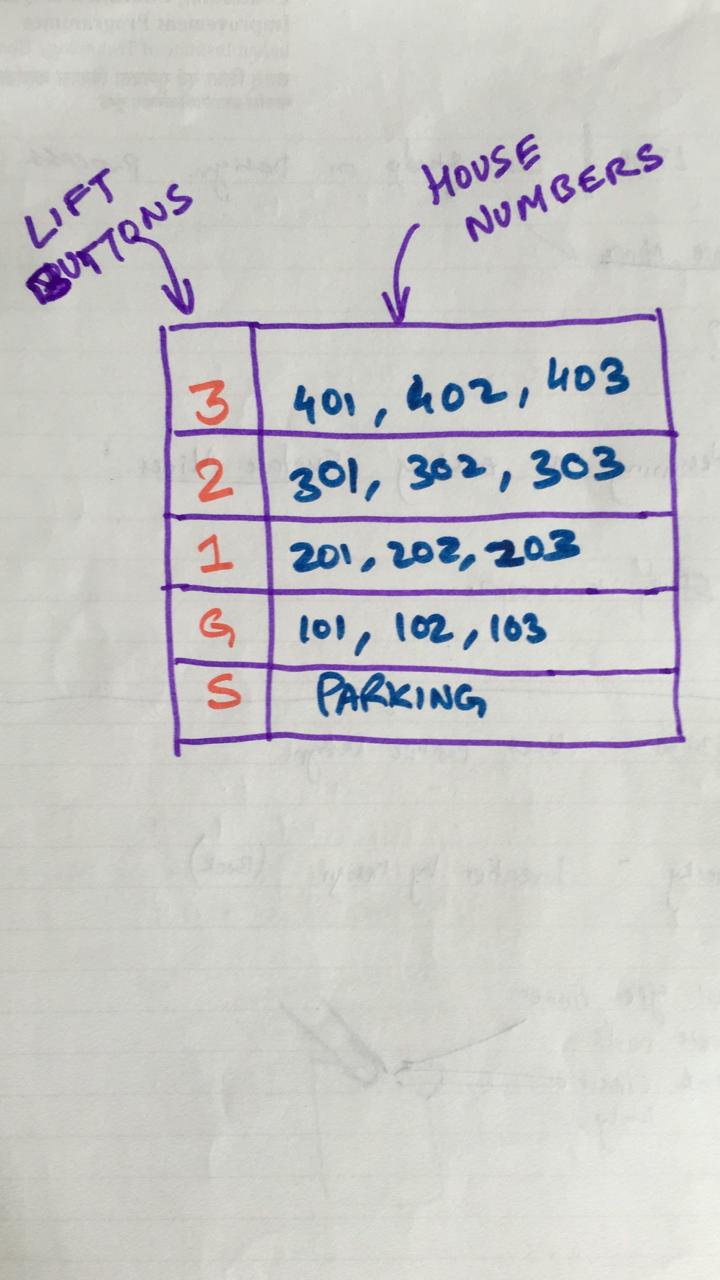 LIFT
BUTTONS
HOUSE
NUMBERS
3 401, 402, 403
2 301, 302, 303
1 201, 202, 203
G 101, 102, 103
S PARKING